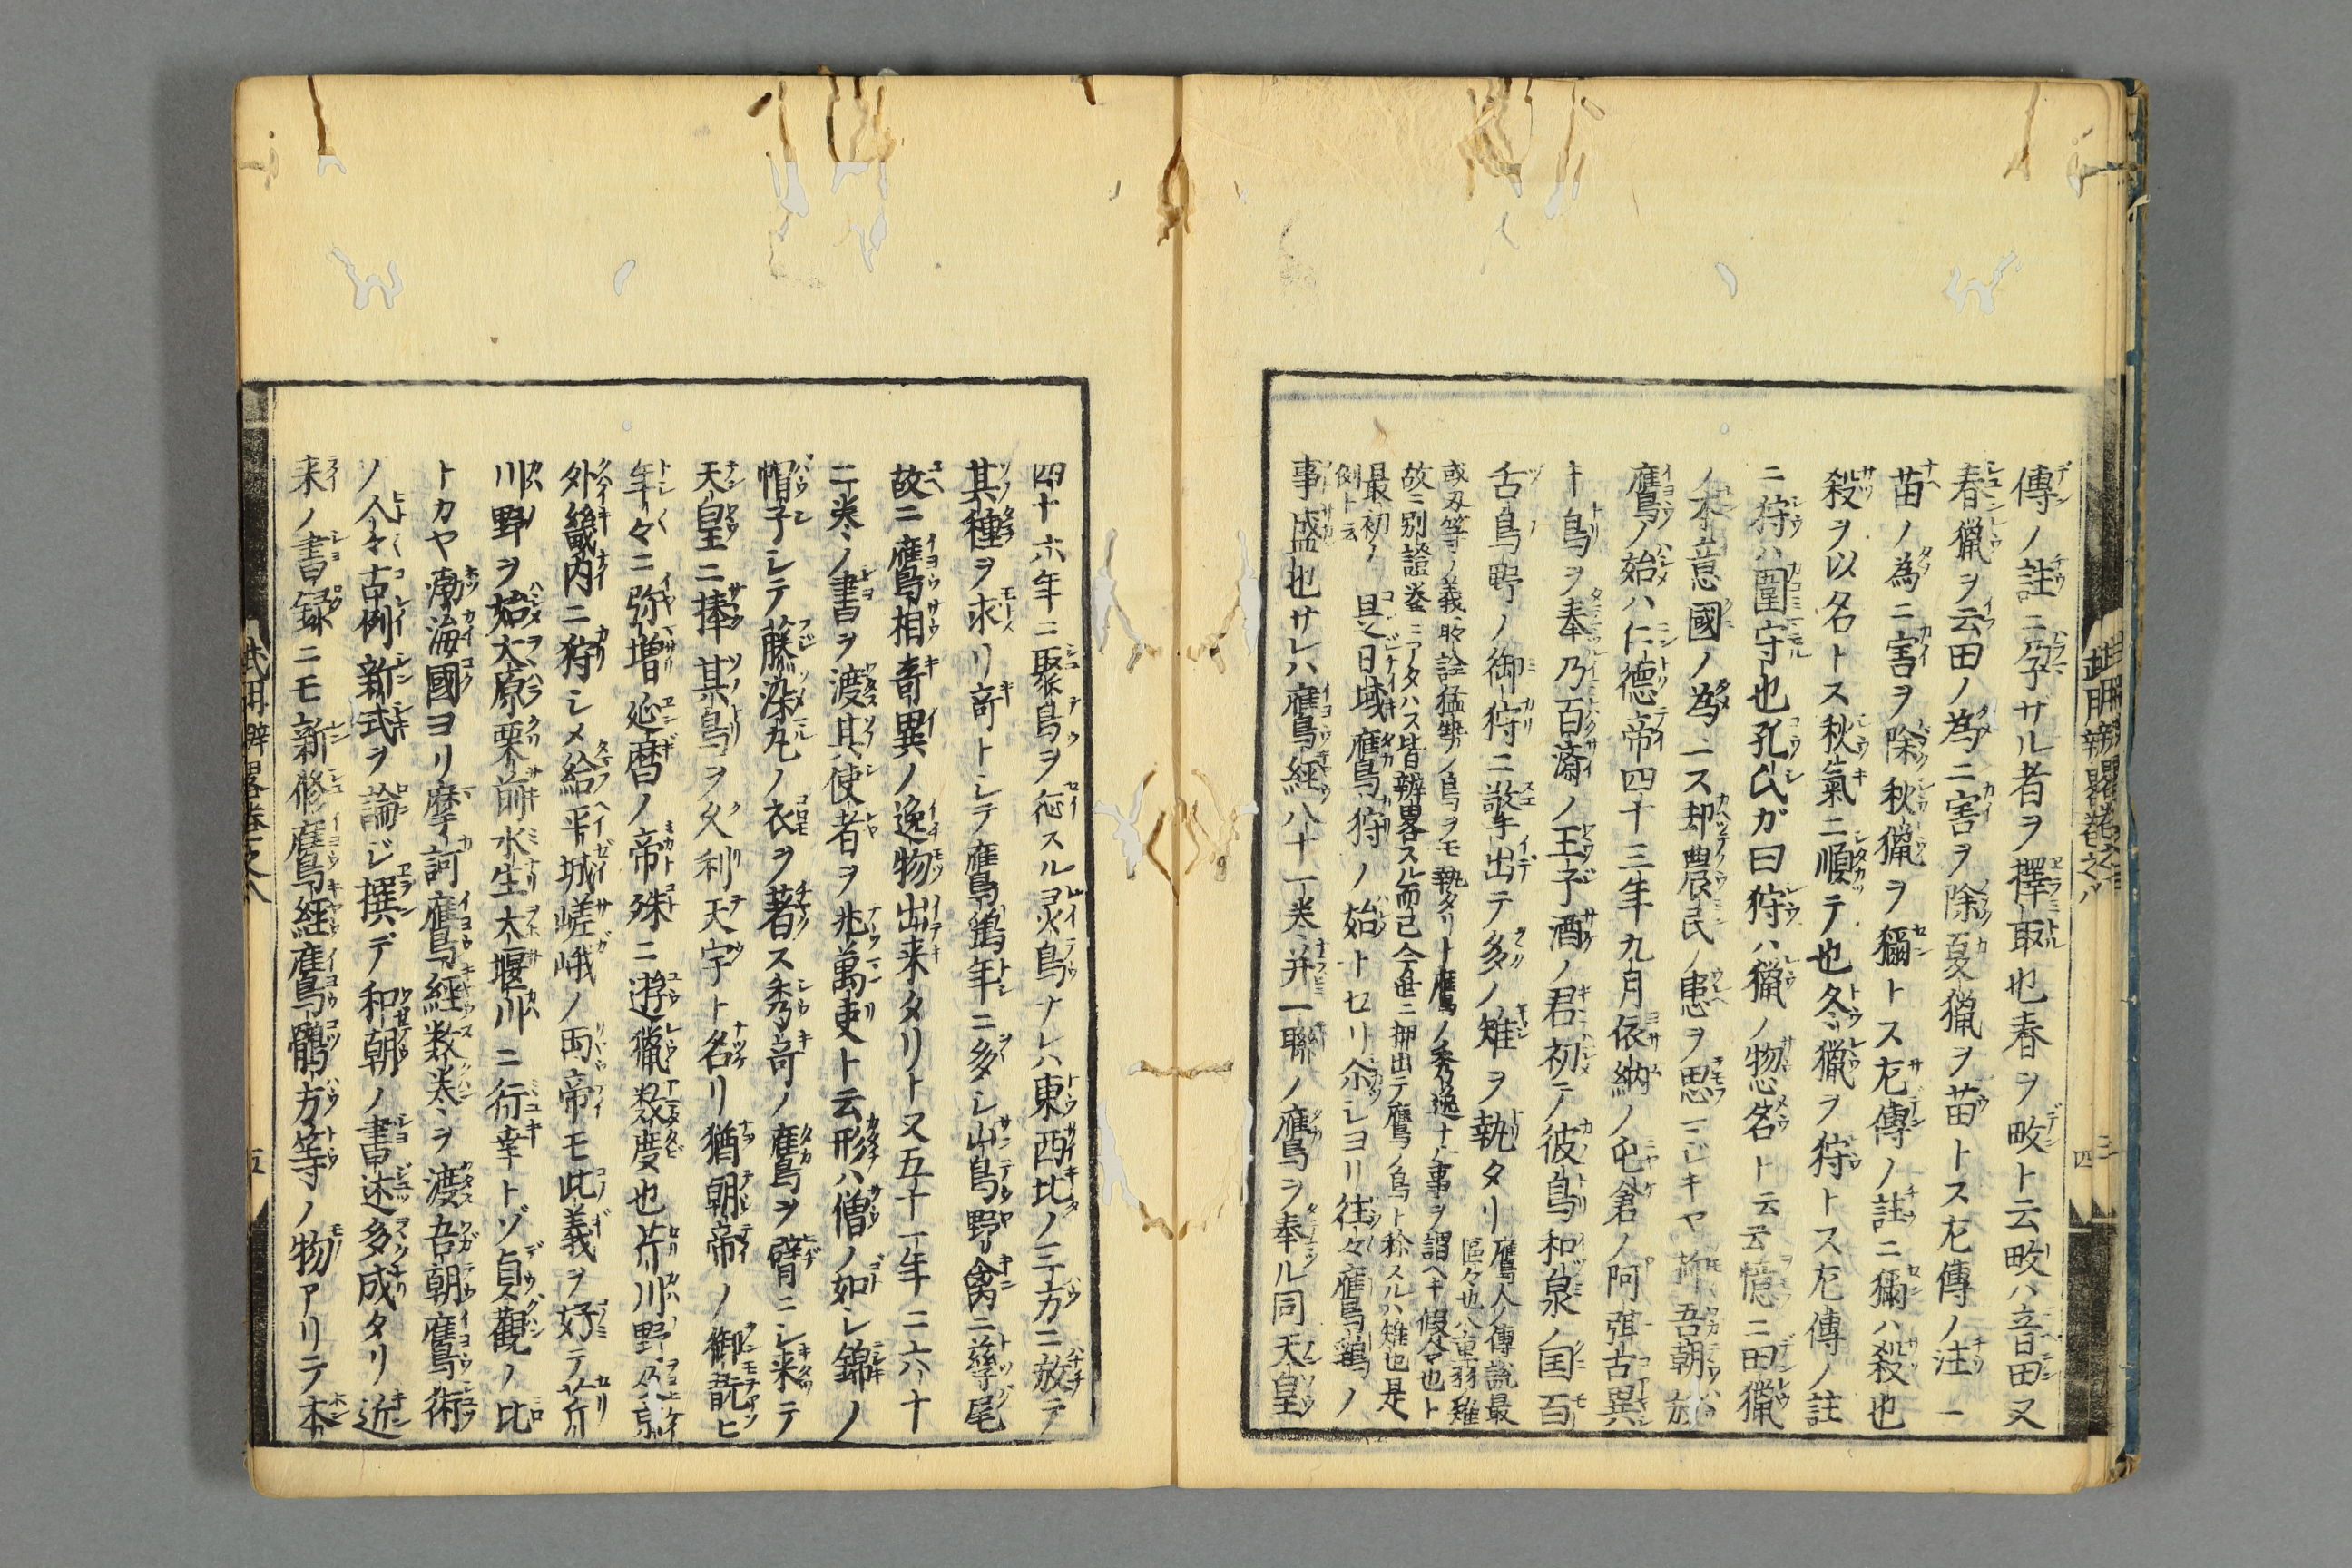 傳ノ註ニ孕ザル者ヲ擇ミ取也春ヲ畋ト云畋ハ音田又
春獵ヲ云田ノ為ニ害ヲ除夏獵ヲ苗トス左傳ノ注ニ
苗ノ為ニ害ヲ除秋獵ヲ獮トス左傳ノ註ニ獮ハ殺也
殺ヲ以名トス秋氣ニ順テ也冬獵ヲ狩トス左傳ノ註
ニ狩ハ圍守也孔氏ガ曰狩ハ獵ノ惣名ト云云憶ニ田獵
ノ本意國ノ為ニス却農民ノ患ヲ思ニジキヤ抑吾朝放
鷹ノ始ハ仁德帝四十三年九月依納ノ屯倉ノ阿弭古異
キ鳥ヲ奉乃百濟ノ王子酒ノ君初テノ彼鳥和泉ノ国百
舌鳥野ノ御狩ニ䋲出テ多ノ雉ヲ執タリ鷹人ノ傳説最
區々也八重羽雉
或刄等ノ義取詮猛勢ノ鳥ヲモ執タリト鷹ノ秀逸ナル事ヲ謂ヘキ假令也ト
故ニ別證盗ニアタハス皆辨畧スル而已今世ニ押出テ鷹ノ鳥ト称スルハ雉也是
最初ノ
例ト云
是日域鷹狩ノ始トセリ尒シヨリ往々鷹鷂ノ
事盛也サレハ鷹經八十一巻并一聯ノ鷹ヲ奉ル同天皇
四十六年ニ聚鳥ヲ征スル灵鳥ナレハ東西北ノ三方ニ放テ
其種ヲ求リ竒トシテ鷹鷂年ニ多シ山鳥野禽ニ孳尾
故ニ鷹相竒異ノ逸物出来タリトス五十一年ニ六十
二巻ノ書ヲ渡其使者ヲ兆萬吏ト云形ハ僧ノ如シ錦ノ
帽子シテ藤染丸ノ衣ヲ著ス秀竒ノ鷹ヲ臂ニシ来テ
天皇ニ捧其鳥ヲ久利天宇ト名リ猶朝帝ノ御翫ヒ
年々ニ弥増延暦ノ帝殊ニ遊獵数度也芹川野外京
外畿内ニ狩シメ給平城嵯峨ノ両帝モ此義ヲ好テ芹
川野ヲ始大原栗前水生大堰川ニ行幸トゾ貞觀ノ比
トカヤ渤海國ヨリ摩訶鷹經数巻ヲ渡吾朝鷹術
ノ人々古例新式ヲ論ジ撰デ和朝ノ書述多成タリ近
来ノ書録ニモ新修鷹經鷹鶻方等ノ物アリテ本
武用辨畧巻之八
四
五